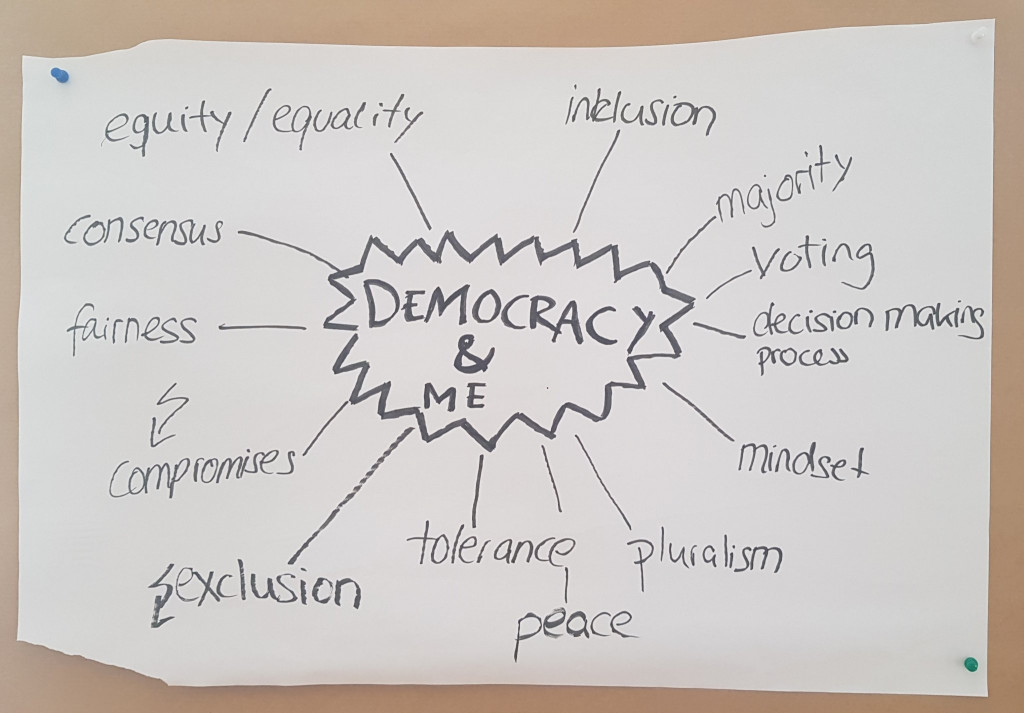 equity / equality
inklusion
majority
consensus
voting
DEMOCRACY
&
ME
fairness
decision making
process
compromises
mindset
tolerance
pluralism
exclusion
peace